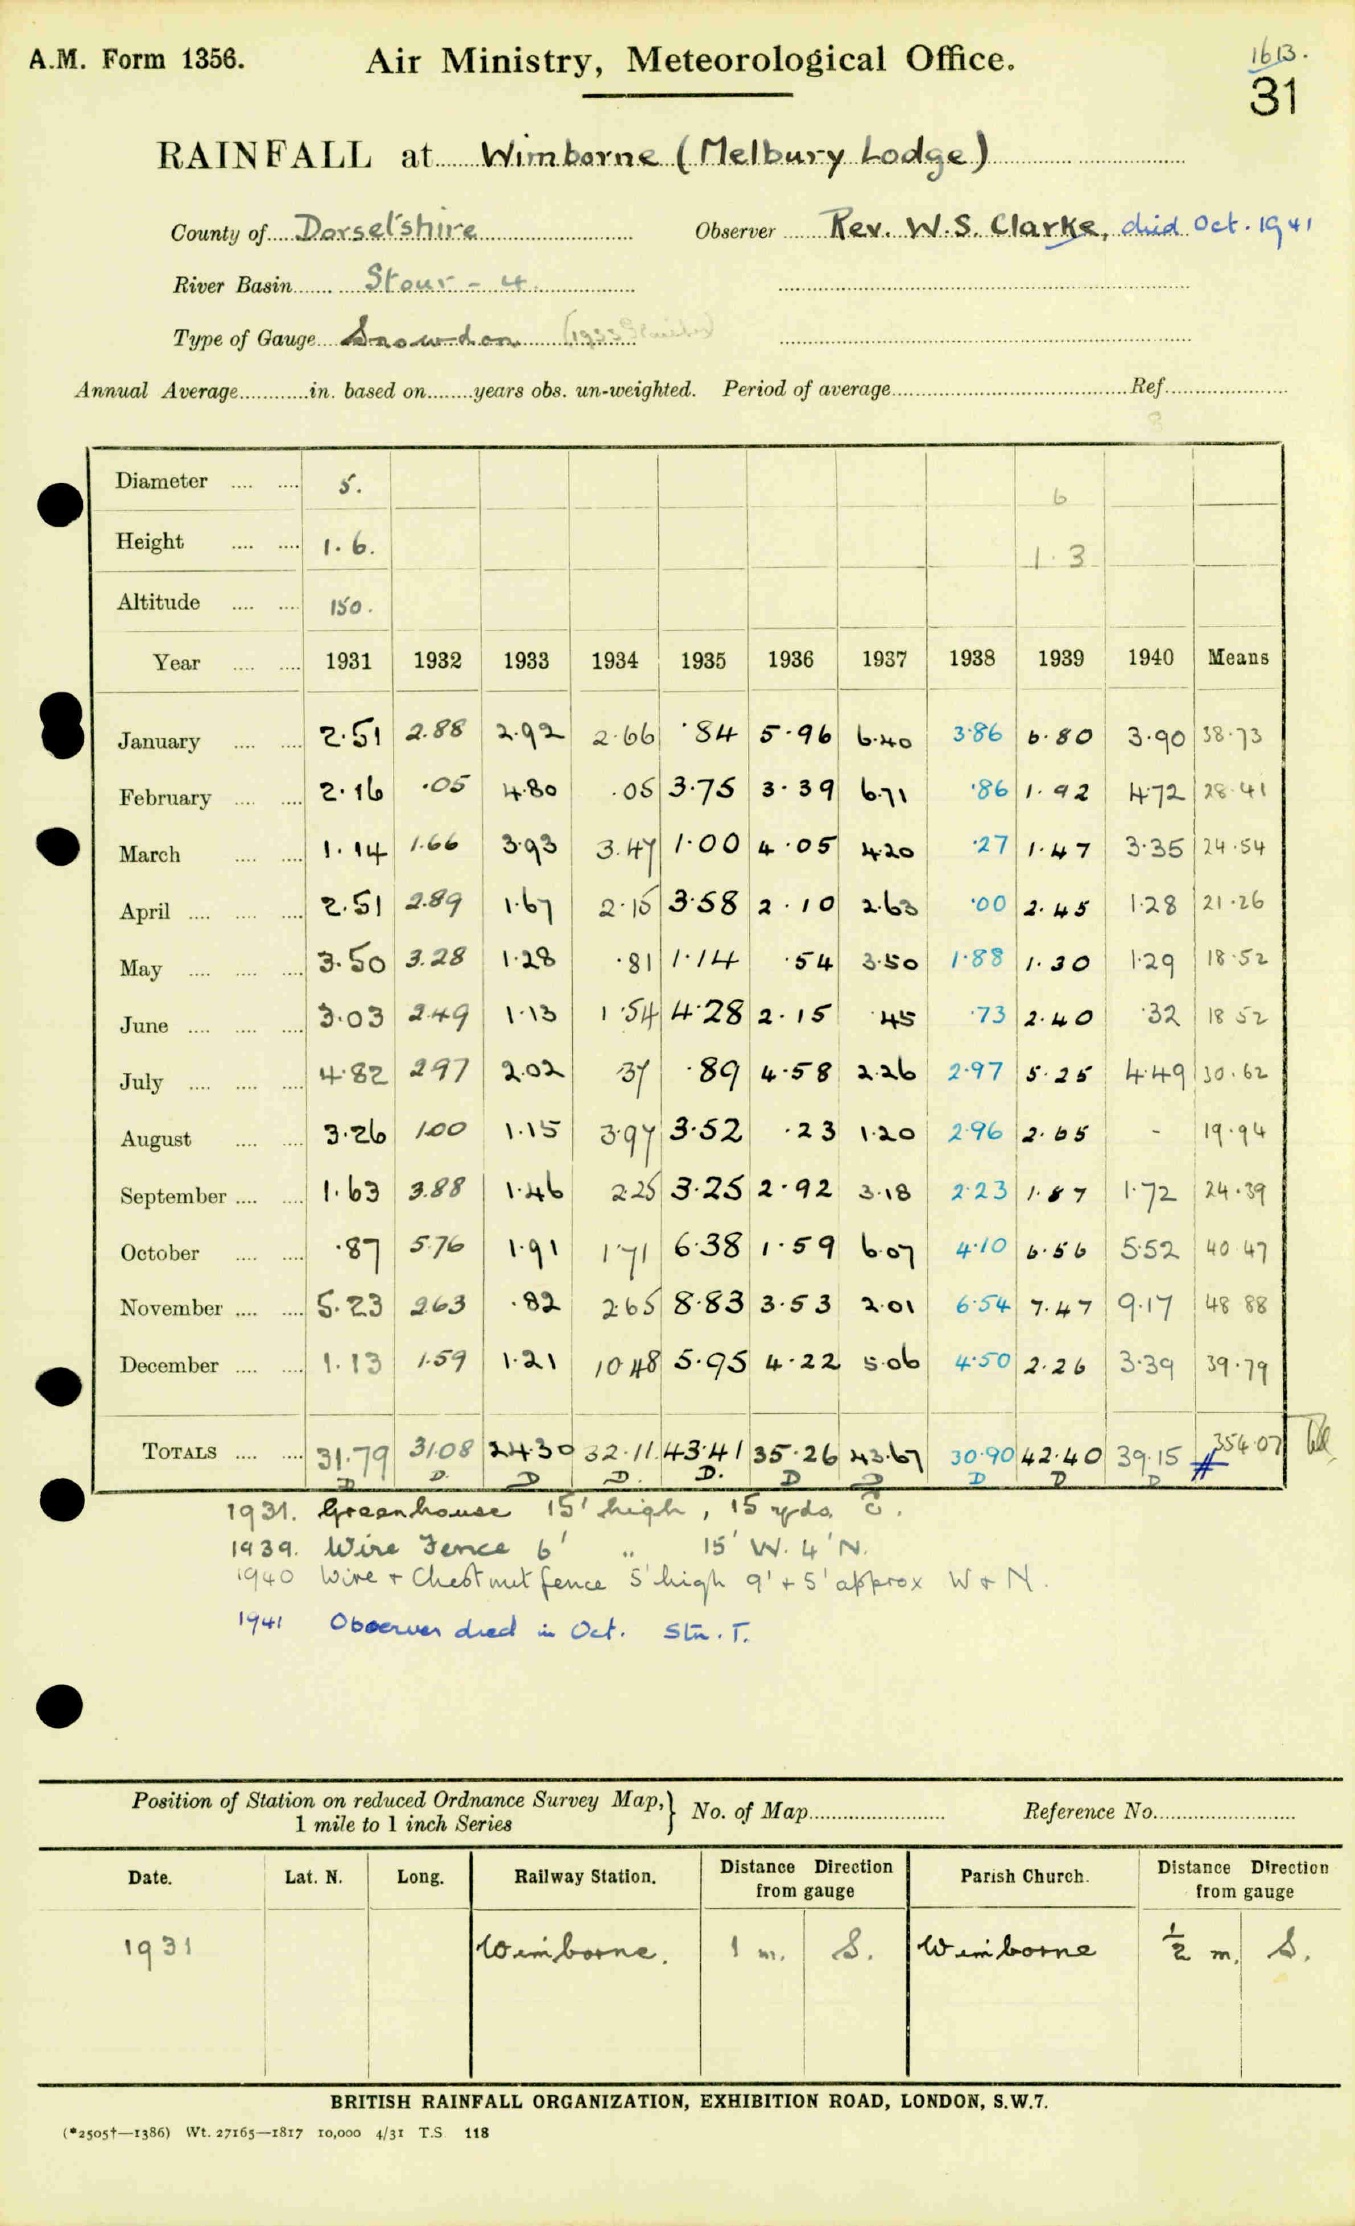 A.M. Form 1356. Air Ministry, Meteorological Office. 1613.
31
RAINFALL at Wimborne (Melbury Lodge)
County of Dorsetshire Observer Rev. W.S. Clarke, died Oct. 1941
River Basin Stour - 4.
Type of Gauge Snowdon (1933
Annual Average in. based on years obs. un-weighted. Period of average Ref.
8
Diameter 5. 6
Height 1.6. 1.3
Altitude 150.
Year 1931 1932 1933 1934 1935 1936 1937 1938 1939 1940 Means
January 2.51 2.88 2.92 2.66 .84 5.96 6.40 3.86 6.80 3.90 38.73
February 2.16 .05 4.80 .05 3.75 3.39 6.71 .86 1.92 4.72 28.41
March 1.14 1.66 3.93 3.47 1.00 4.05 4.20 .27 1.47 3.35 24.54
April 2.51 2.89 1.67 2.15 3.58 2.10 2.63 .00 2.45 1.28 21.26
May 3.50 3.28 1.28 .81 1.14 .54 3.50 1.88 1.30 1.29 18.52
June 3.03 2.49 1.13 1.54 4.28 2.15 .45 .73 2.40 .32 18 52
July 4.82 2.97 2.02 .37 .89 4.58 2.26 2.97 5.25 4.49 30.62
August 3.26 1.00 1.15 3.97 3.52 .23 1.20 2.96 2.65 - 19.94
September 1.63 3.88 1.46 2.25 3.25 2.92 3.18 2.23 1.87 1.72 24.39
October .87 5.76 1.91 1.71 6.38 1.59 6.07 4.10 6.56 5.52 40 47
November 5.23 2.63 .82 2.65 8.83 3.53 2.01 6.54 7.47 9.17 48 88
December 1.13 1.59 1.21 10.48 5.95 4.22 5.06 4.50 2.26 3.39 39.79
TOTALS 31.79 31.08 24.30 32.11 43.41 35.26 43.67 30.90 42.40 39.15 # 354.07
D D. D D. D. D D D D D
1931. Greenhouse 15' high, 15 yds.
1939. Wire Fence 6' " 15' W. 4' N.
1940 Wire + Chestnut fence 5' high 9' + 5' approx W + N.
1941 Observer died in Oct. Stn. T.
Position of Station on reduced Ordnance Survey Map, } No. of Map Reference No.
1 mile to 1 inch Series
Date. Lat. N. Long. Railway Station. Distance Direction from gauge Parish Church. Distance Direction from gauge
1931 Wimborne. 1 m. S. Wimborne ½ m. S.
BRITISH RAINFALL ORGANIZATION, EXHIBITION ROAD, LONDON, S.W.7.
(*2505†—1386) Wt. 27165—1817 10,000 4/31 T.S 118